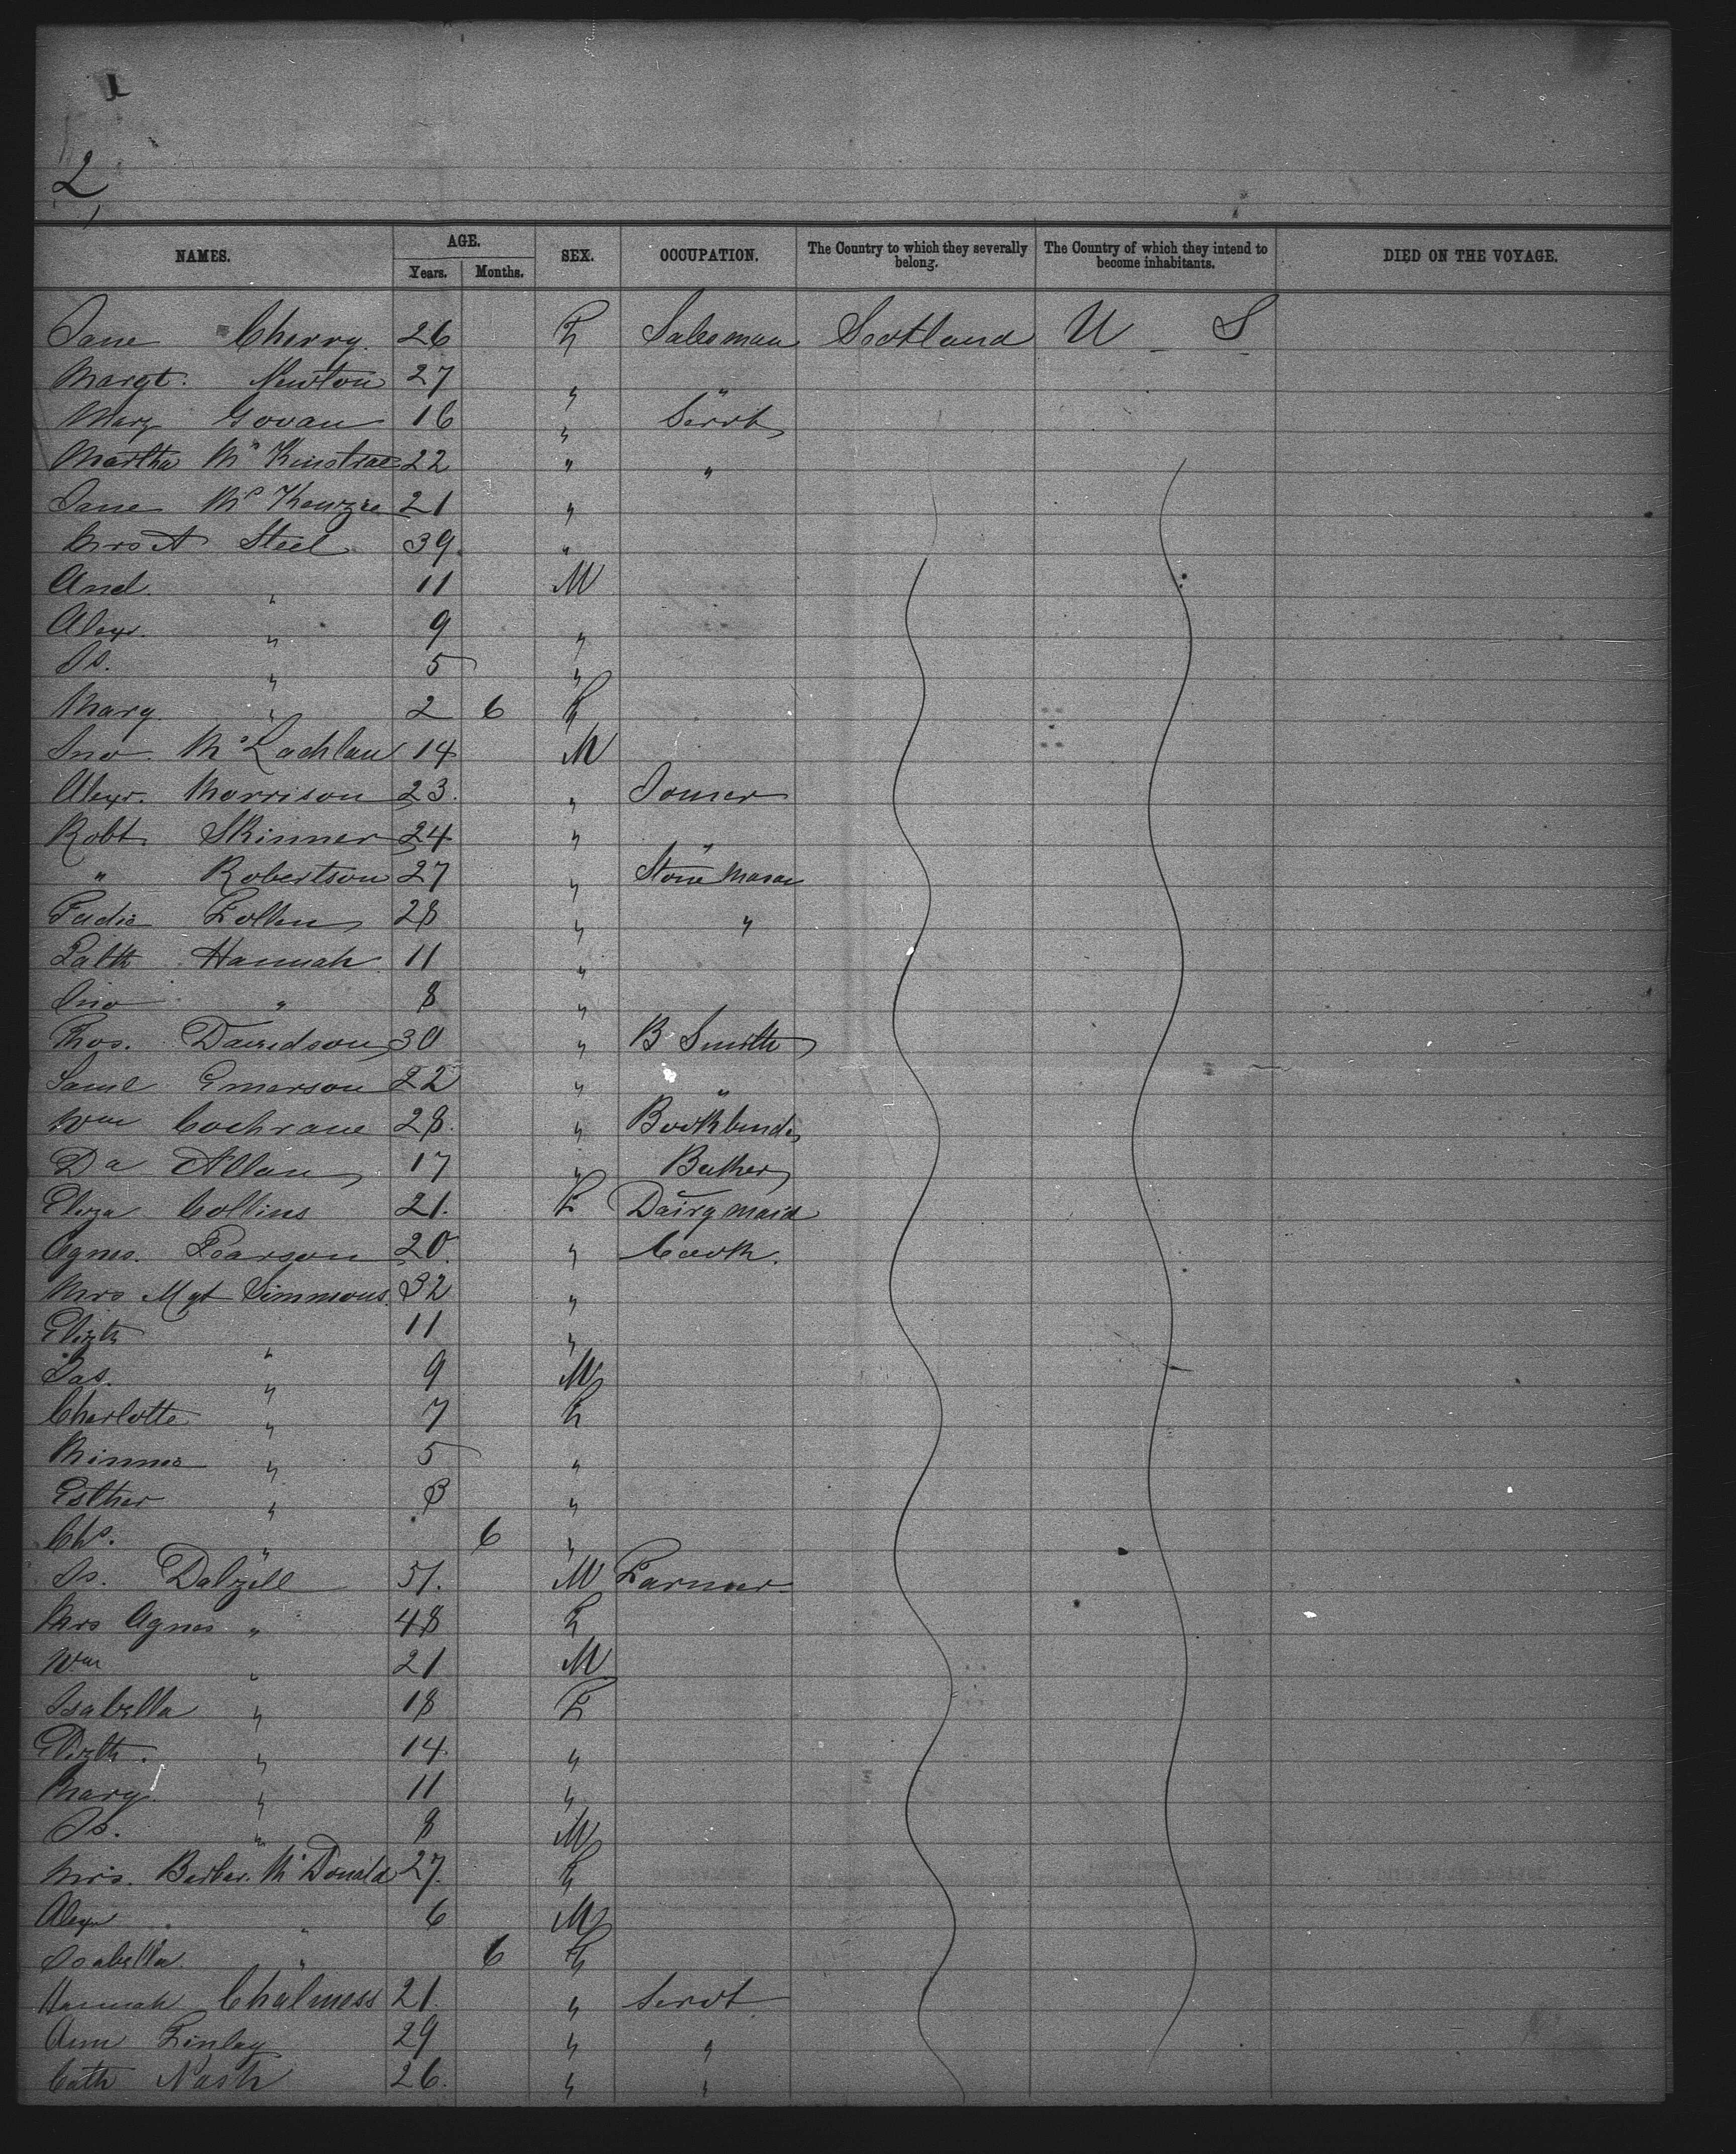 2
NAMES. AGE. Years. Months. SEX. OCCUPATION. The Country to which they severally belong. The Country of which they intend to become inhabitants. DIED ON THE VOYAGE.
Jane Cherry 26 F Salesman Scotland U S
Margt. Newton 27 " "
Mary Govan 16 " Servt
Martha Mc Kinstrae 22 " "
Jane Mc Kenzie 21 "
Mrs A Steel 39 "
And. " 11 M
Alexr. " 9 "
Js. " 5 "
Mary " 2 6 F
Jno. Mc Lachlan 14 M
Alexr. Morrison 23 " Joiner
Robt Skinner 24 " "
" Robertson 27 " Stone Mason
28 " "
Patk Hannah 11 "
Jno " 8 "
Thos. Davidson 30 " B Smith
Saml Emerson 22 " "
Wm Cochrane 28 " Bookbinder
Da Allan 17 "
Eliza Collins 21 F Dairymaid
Agnes Pearson 20 " Cook.
Mrs Mgt Simmons 32 "
Elizth " 11 "
Jas. " 9 M
Charlotte " 7 F
Minnie " 5 "
Esther " 3 "
Chs. " 6 "
Js. Dalzell 51. M Farmer
Mrs Agnes " 48 F
Wm " 21 M
Isabella " 18 F
Elizth. " 14 "
Mary " 11 "
Js. " 8 M
Mrs. Barbar. Mc Donald 27. F
Alexr " 6 M
Isabella " 6 F
Hannah Chalmess 21. " Servt
Ann Finlay 29 " "
Cath Nash 26. " "